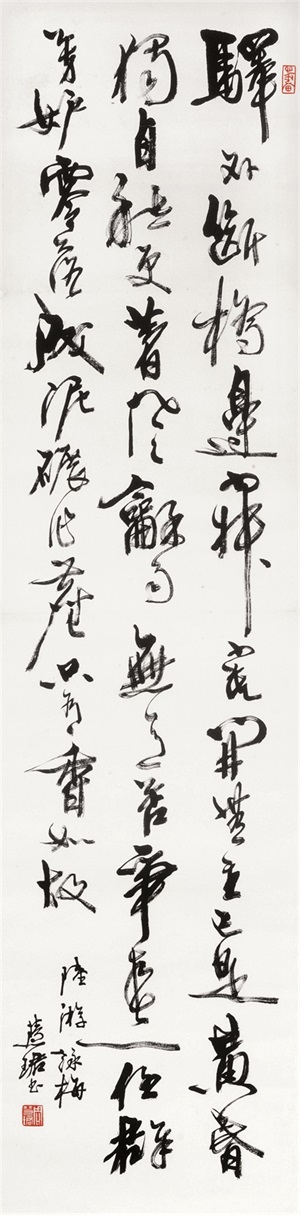 驛外斷橋邊寂寞開無主已是黃昏
獨自愁更著風龢雨無意苦爭春一任群
芳妒零落成泥碾作塵只有香如故
陸游詠梅
慧珺書